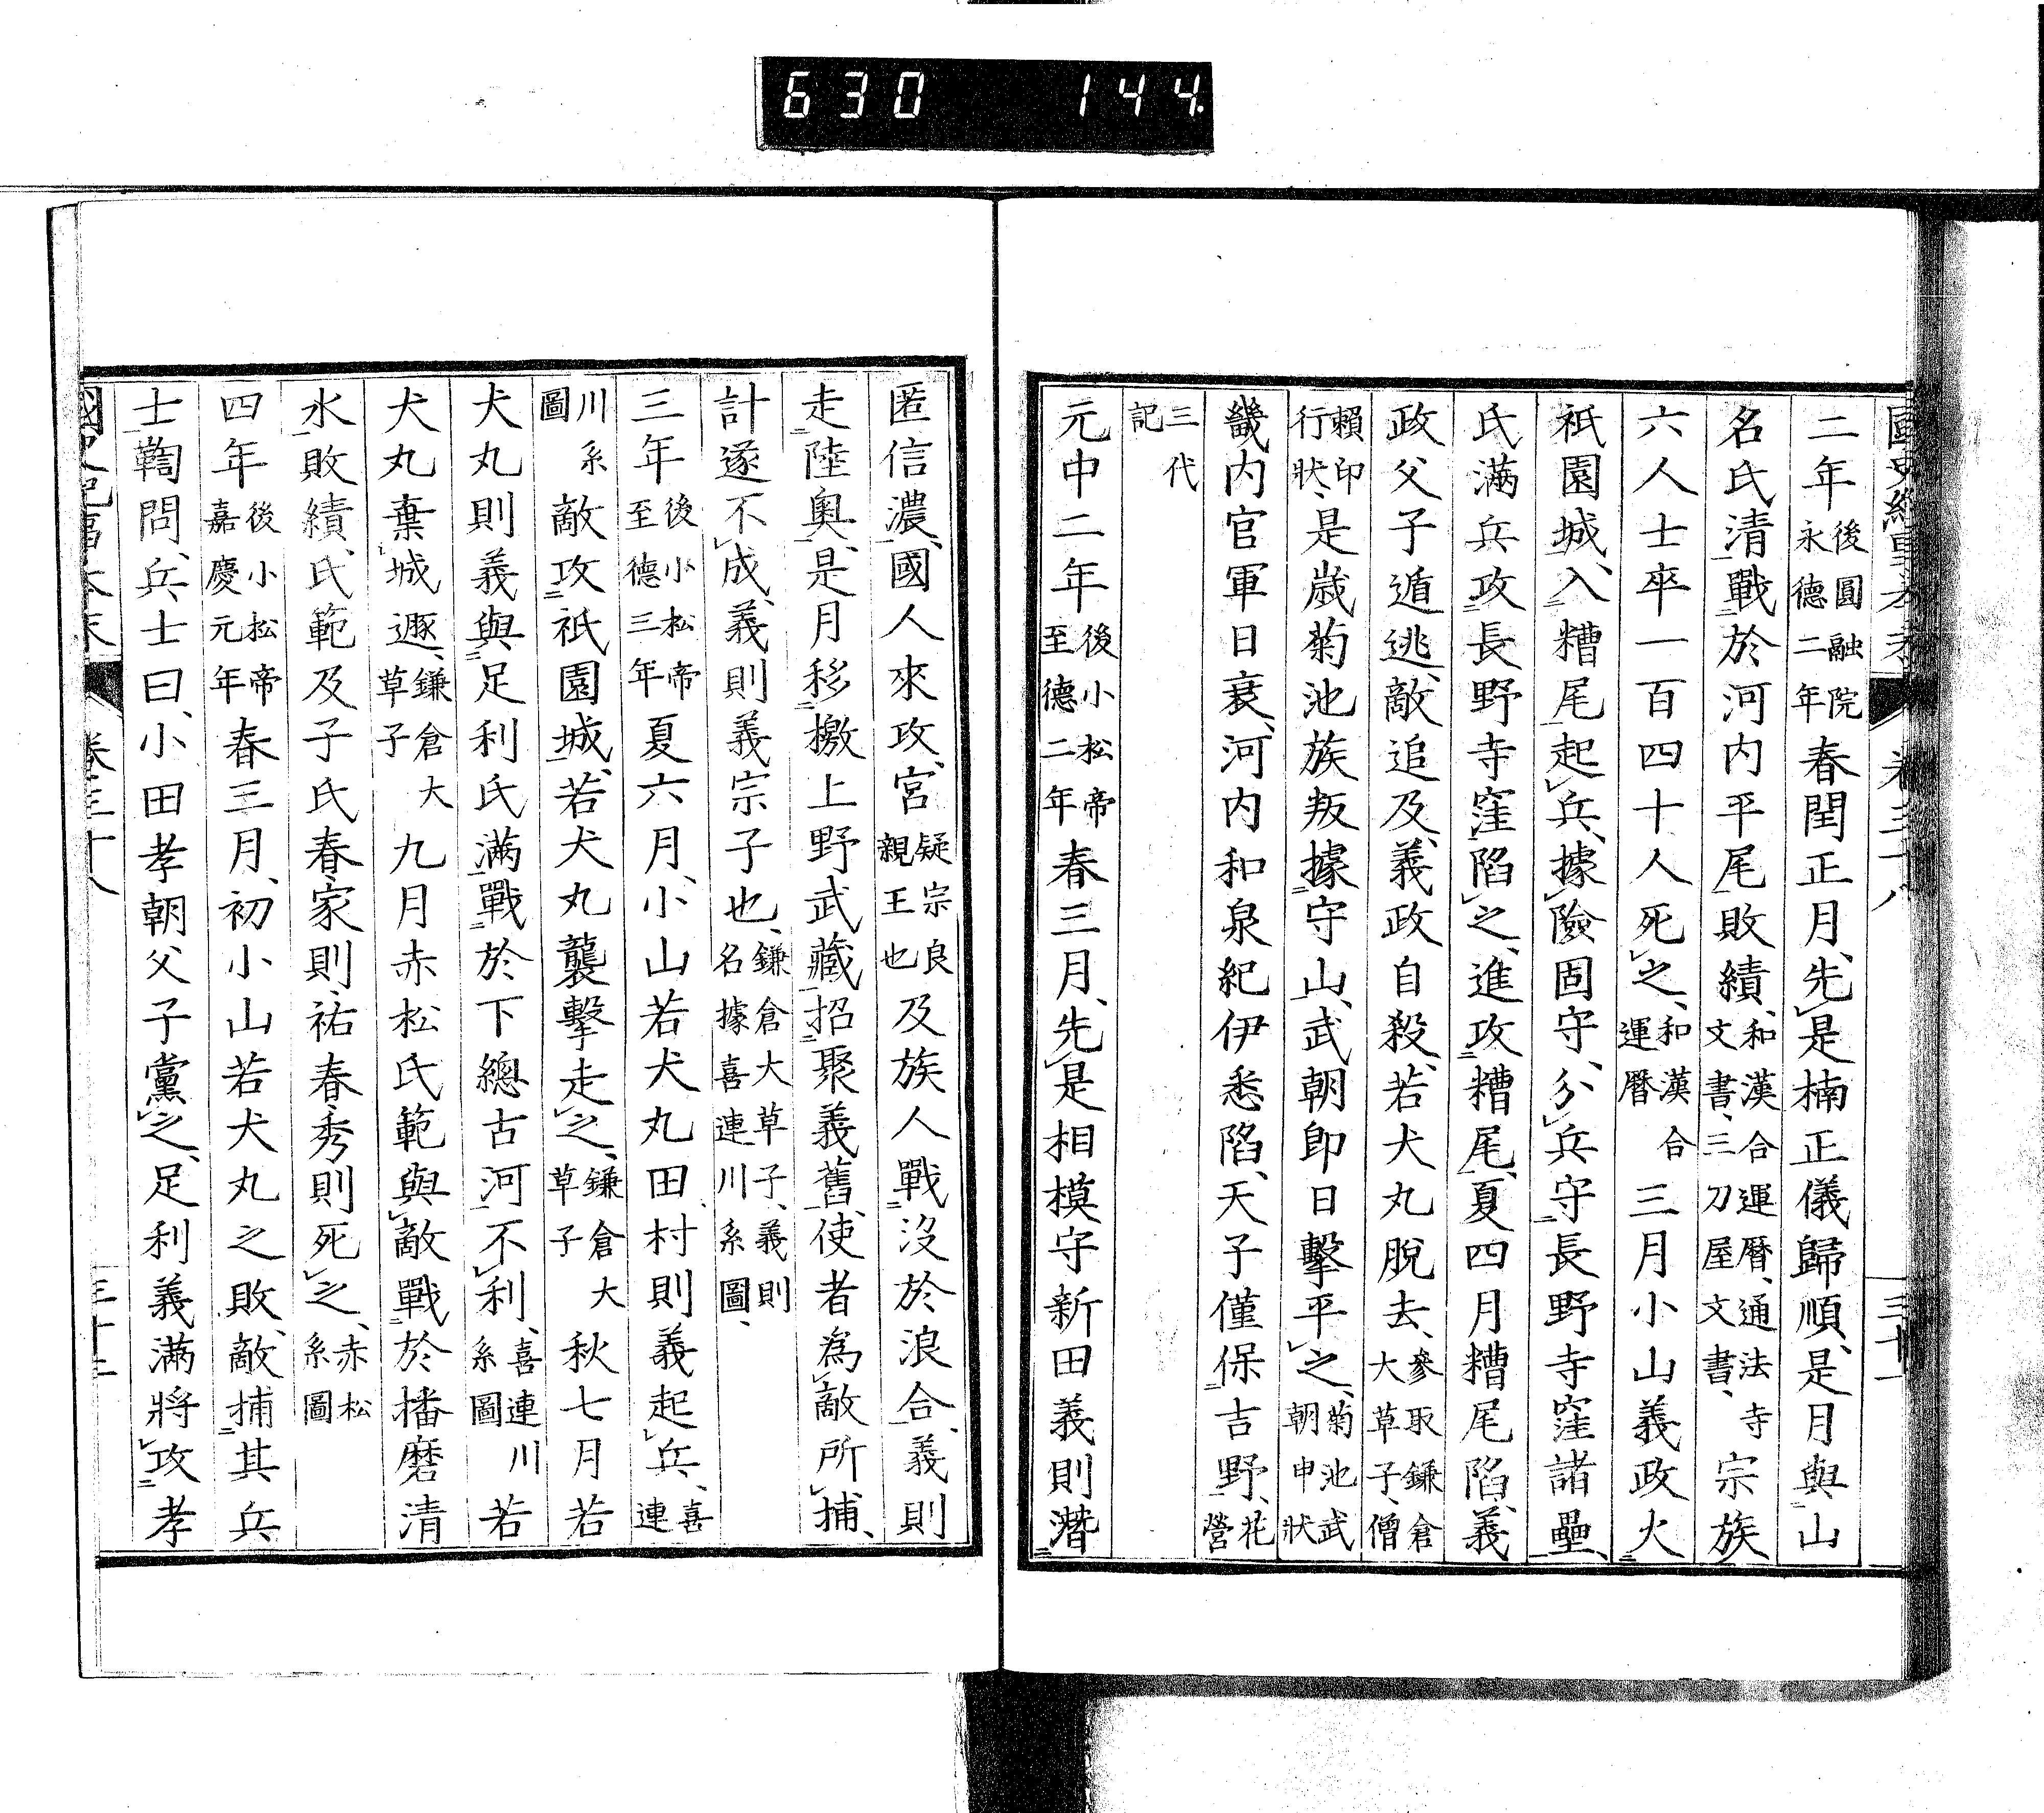 630 144
二年後圓融院永德二年春閏正月、先是楠正儀歸順、是月與山
名氏清戰於河内平尾敗績、和漢合運曆、通法寺文書、三刀屋文書、宗族
六人士卒一百四十人死之、和漢合運曆三月小山義政火
祇園城、入糟尾起兵、據險固守、分兵守長野寺窪諸壘、
氏滿兵攻長野寺窪陷之、進攻糟尾、夏四月糟尾陷、義
政父子遁逃、敵追及、義政自殺、若犬丸脫去、參取鎌倉大草子、僧
賴印行狀、是歲菊池族叛據守山、武朝卽日擊平之、菊池武朝申狀
畿内官軍日衰、河内和泉紀伊悉陷、天子僅保吉野、花營
三代記
元中二年後小松帝至德二年春三月、先是相模守新田義則潛
匿信濃、國人來攻、宮疑宗良親王也及族人戰沒於浪合、義則
走陸奧、是月移檄上野武藏招聚義舊、使者為敵所捕、
計遂不成、義則義宗子也、鎌倉大草子、義則名據喜連川系圖、
三年後小松帝至德三年夏六月、小山若犬丸田村則義起兵、喜連
川系圖敵攻祇園城、若犬丸襲擊走之、鎌倉大草子秋七月若
犬丸則義與足利氏滿戰於下總古河、不利、喜連川系圖若
犬丸棄城遯、鎌倉大草子九月赤松氏範與敵戰於播磨清
水敗績、氏範及子氏春、家則、祐春、秀則死之、赤松系圖
四年後小松帝嘉慶元年春三月、初小山若犬丸之敗、敵捕其兵
士鞫問、兵士曰、小田孝朝父子黨之、足利義滿將攻孝
卷三十八